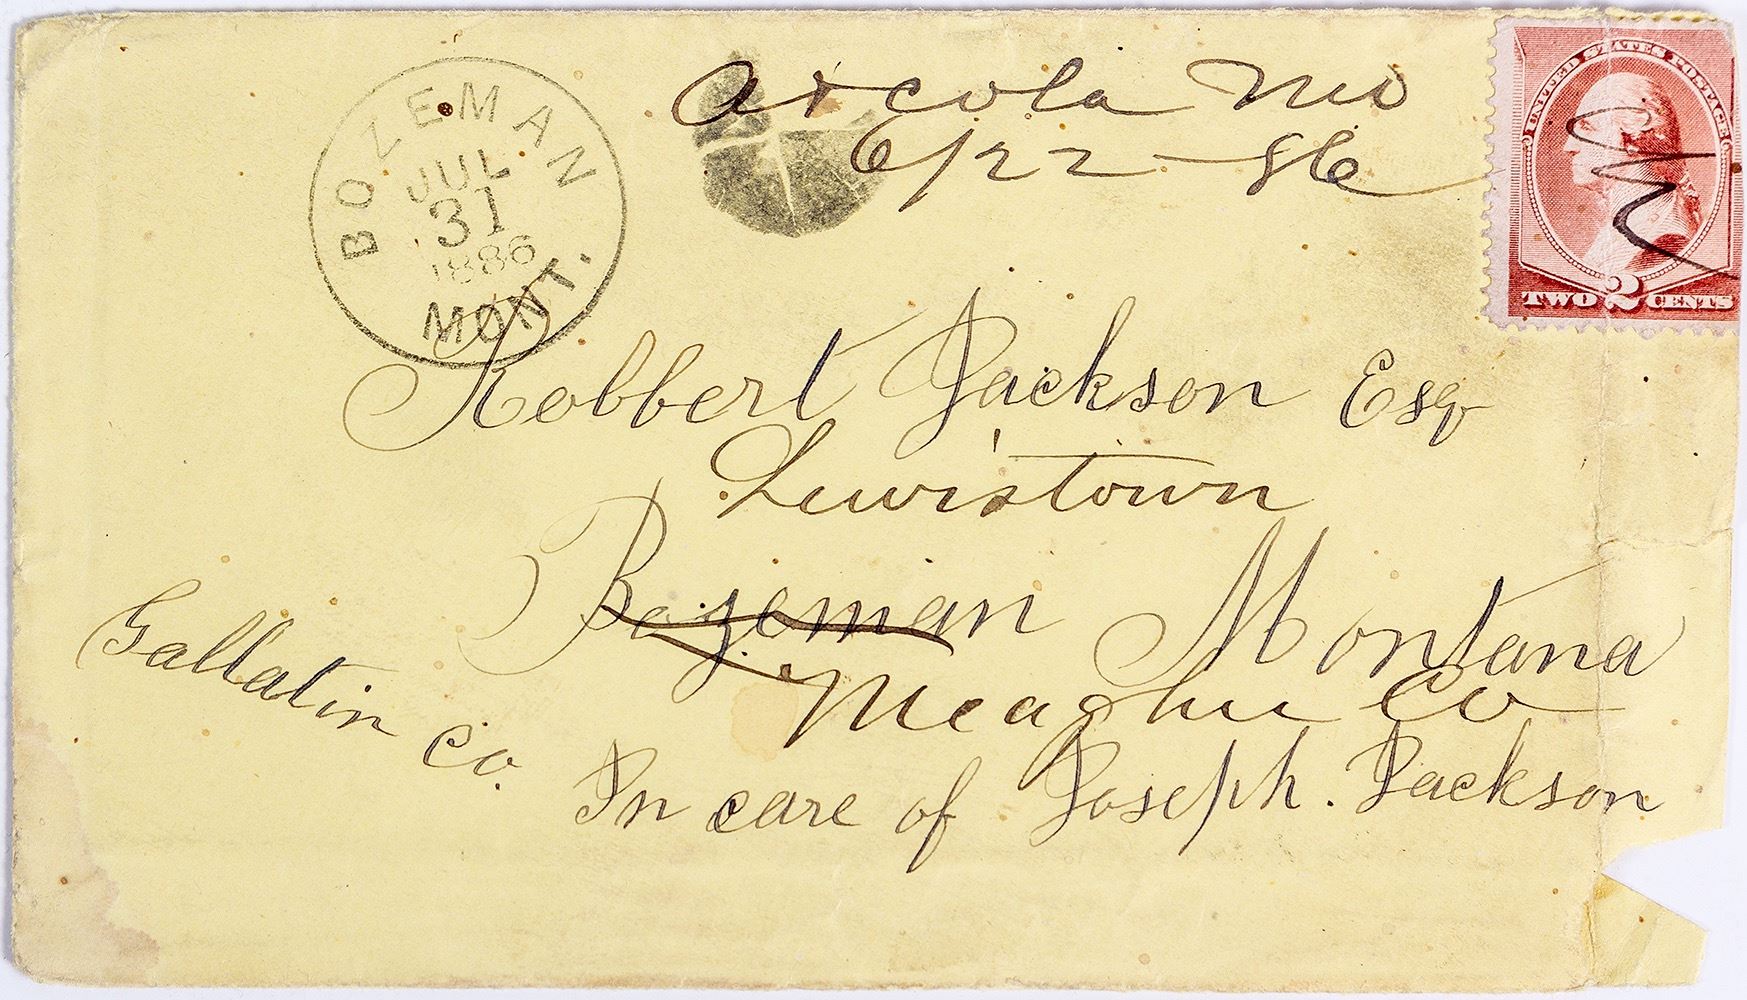 Arcola Mo
6/22-86
UNITED STATES POSTAGE
TWO 2 CENTS
BOZEMAN
JUL
31
1886
MONT.
Robbert Jackson Esq
Lewistown
Bozeman Montana
Meagher Co
Gallatin Co.
In care of Joseph. Jackson